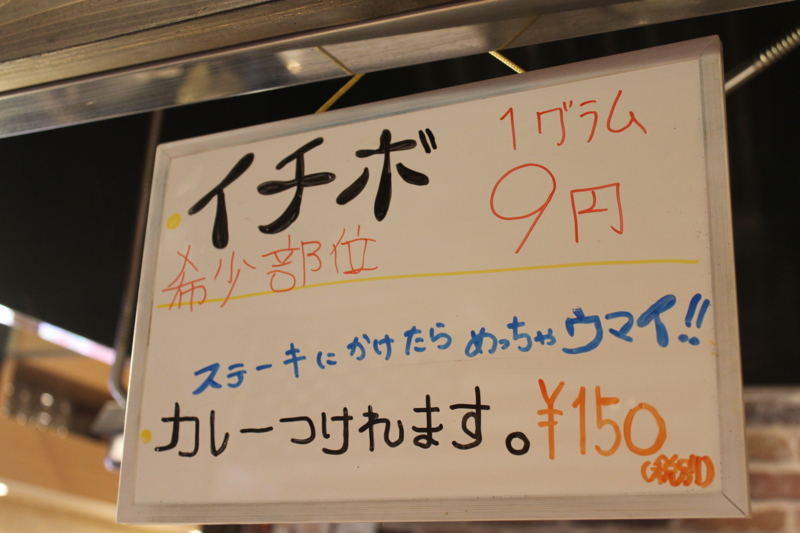 ・イチボ 1グラム
希少部位 9円
ステーキにかけたらめっちゃウマイ!!
・カレーつけれます。¥150